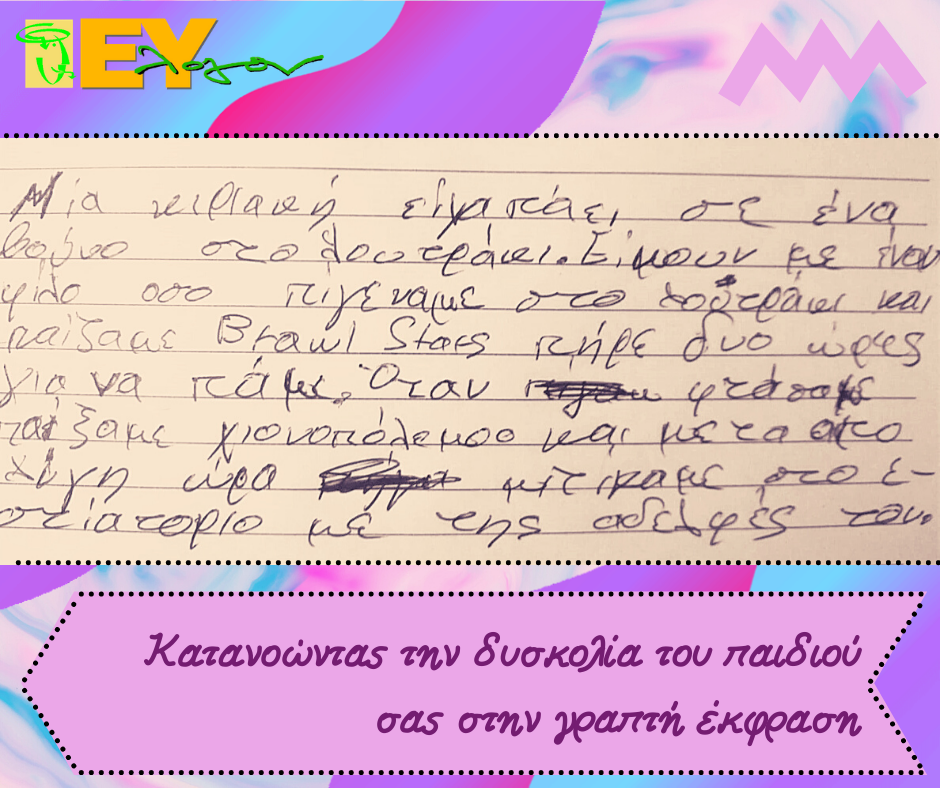 ΕΥ λογον
Μία κιριακή είχα πάει σε ένα
βουνο στο λουτράκι. Είμουν με έναν
φίλο οσο πιγέναμε στο λουτράκι και
παίζαμε Brawl Stars πήρε δυο ώρες
για να πάμε. Όταν φτάσαμε
παίξαμε χιονοπόλεμοο και μετα απο
λίγη ώρα μπίκαμε στο ε-
στιατοριο με της αδελφές του.
Κατανοώντας την δυσκολία του παιδιού
σας στην γραπτή έκφραση